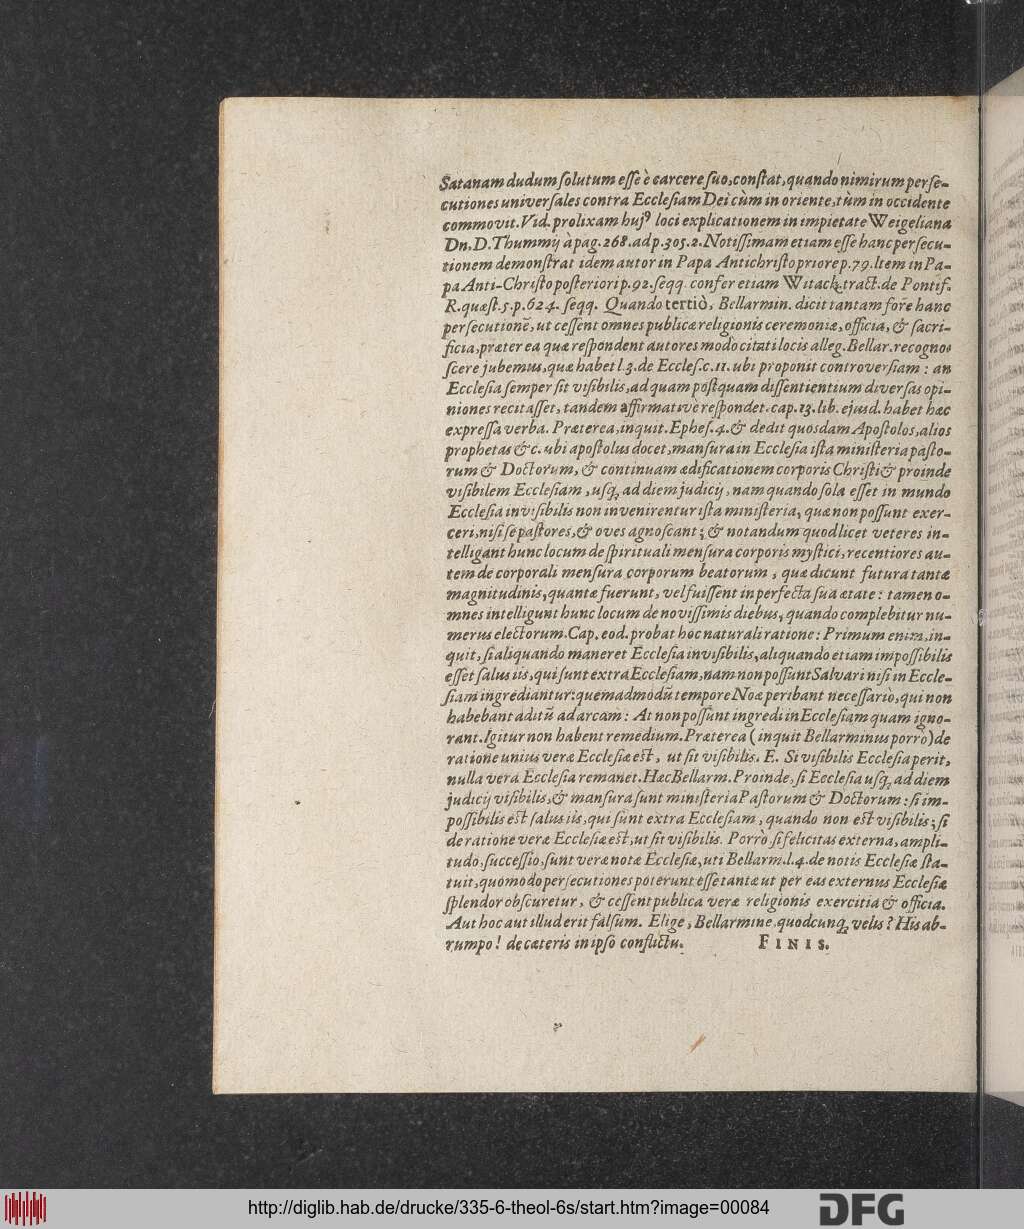 Satanam dudum solutum esse è carcere suo, constat, quando nimirum perse-
cutiones universales contra Ecclesiam Dei cùm in oriente, tùm in occidente
commovit. Vid. prolixam hujꝰ loci explicationem in impietate Weigeliana
Dn. D. Thummij à pag. 268. ad p. 305. 2. Notissimam etiam esse hanc persecu-
tionem demonstrat idem autor in Papa Antichristo priore p. 79. Item in Pa-
pa Anti-Christo posteriori p. 92. seqq. confer etiam Witack. tract. de Pontif.
R. quæst. 5. p. 624. seqq. Quando tertiò, Bellarmin. dicit tantam fore hanc
persecutionē, ut cessent omnes publicæ religionis ceremoniæ, officia, & sacri-
ficia, præter ea quæ respondent autores modo citati locis alleg. Bellar. recogno-
scere jubemus, quæ habet l. 3. de Eccles. c. 11. ubi proponit controversiam: an
Ecclesia semper sit visibilis, ad quam postquam dissentientium diversas opi-
niones recitasset, tandem affirmativè respondet. cap. 13. lib. ejusd. habet hæc
expressa verba. Præterea, inquit. Ephes. 4. & dedit quosdam Apostolos, alios
prophetas &c. ubi apostolus docet, mansura in Ecclesia ista ministeria pasto-
rum & Doctorum, & continuam ædificationem corporis Christi & proinde
visibilem Ecclesiam, usq; ad diem judicij, nam quando sola esset in mundo
Ecclesia invisibilis non invenirentur ista ministeria, quæ non possunt exer-
ceri, nisi se pastores, & oves agnoscant; & notandum quod licet veteres in-
telligant hunc locum de spirituali mensura corporis mystici, recentiores au-
tem de corporali mensura corporum beatorum, quæ dicunt futura tantæ
magnitudinis, quantæ fuerunt, vel fuissent in perfecta sua ætate: tamen o-
mnes intelligunt hunc locum de novissimis diebus, quando complebitur nu-
merus electorum. Cap. eod. probat hoc naturali ratione: Primum enim, in-
quit, si aliquando maneret Ecclesia invisibilis, aliquando etiam impossibilis
esset salus iis, qui sunt extra Ecclesiam, nam non possunt Salvari nisi in Eccle-
siam ingrediantur: quemadmodū tempore Noæ peribant necessariò, qui non
habebant aditū ad arcam: At non possunt ingredi in Ecclesiam quam igno-
rant. Igitur non habent remedium. Præterea (inquit Bellarminus porrò) de
ratione unius veræ Ecclesiæ est, ut sit visibilis. E. Si visibilis Ecclesia perit,
nulla vera Ecclesia remanet. Hæc Bellarm. Proinde, si Ecclesia usq; ad diem
judicij visibilis, & mansura sunt ministeria Pastorum & Doctorum: si im-
possibilis est salus iis, qui sunt extra Ecclesiam, quando non est visibilis; si
de ratione veræ Ecclesiæ est, ut sit visibilis. Porrò si felicitas externa, ampli-
tudo, successio, sunt veræ notæ Ecclesiæ, uti Bellarm. l. 4. de notis Ecclesiæ sta-
tuit, quomodo persecutiones poterunt esse tantæ ut per eas externus Ecclesiæ
splendor obscuretur, & cessent publica veræ religionis exercitia & officia.
Aut hoc aut illud erit falsum. Elige, Bellarmine, quodcunq; velis? His ab-
rumpo! de cæteris in ipso conflictu. FINIS.
http://diglib.hab.de/drucke/335-6-theol-6s/start.htm?image=00084
DFG